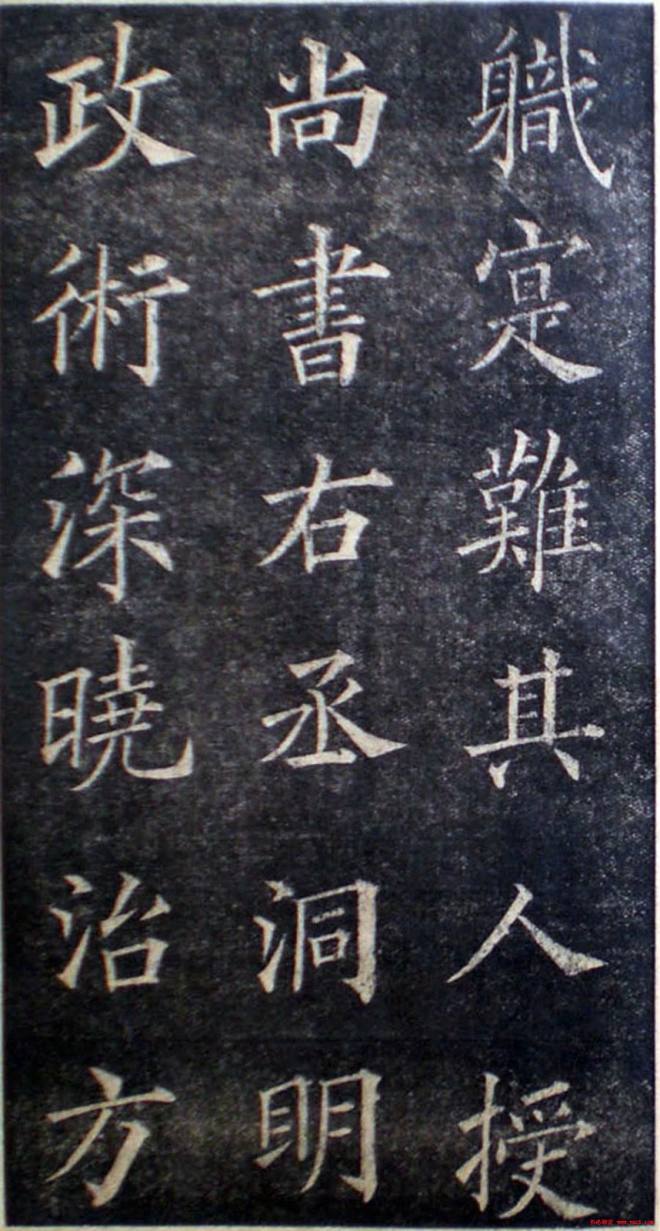 軄寔難其人授
尚書右丞洞明
政術深曉治方